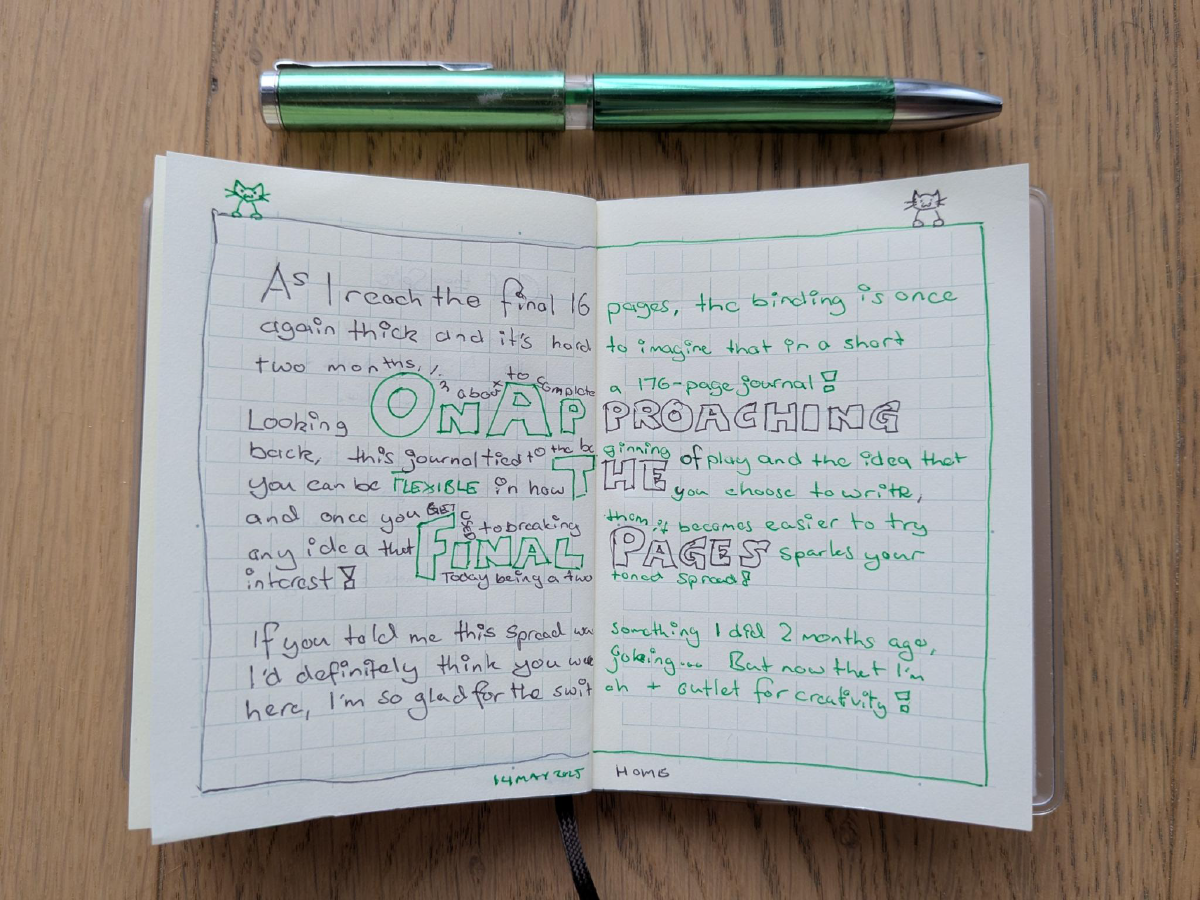 As I reach the final 16 pages, the binding is once
again thick and it's hard to imagine that in a short
two months, about to complete a 176-page journal!
ON APPROACHING
Looking
back, this journal tied to the beginning of play and the idea that
THE
you can be FLEXIBLE in how you choose to write,
and once you get used to breaking them, it becomes easier to try
FINAL PAGES
any idea that sparks your
interest! Today being a two toned spread!
If you told me this spread was something I did 2 months ago,
I'd definitely think you were joking... But now that I'm
here, I'm so glad for the switch + outlet for creativity!
14 MAY 2025 HOME